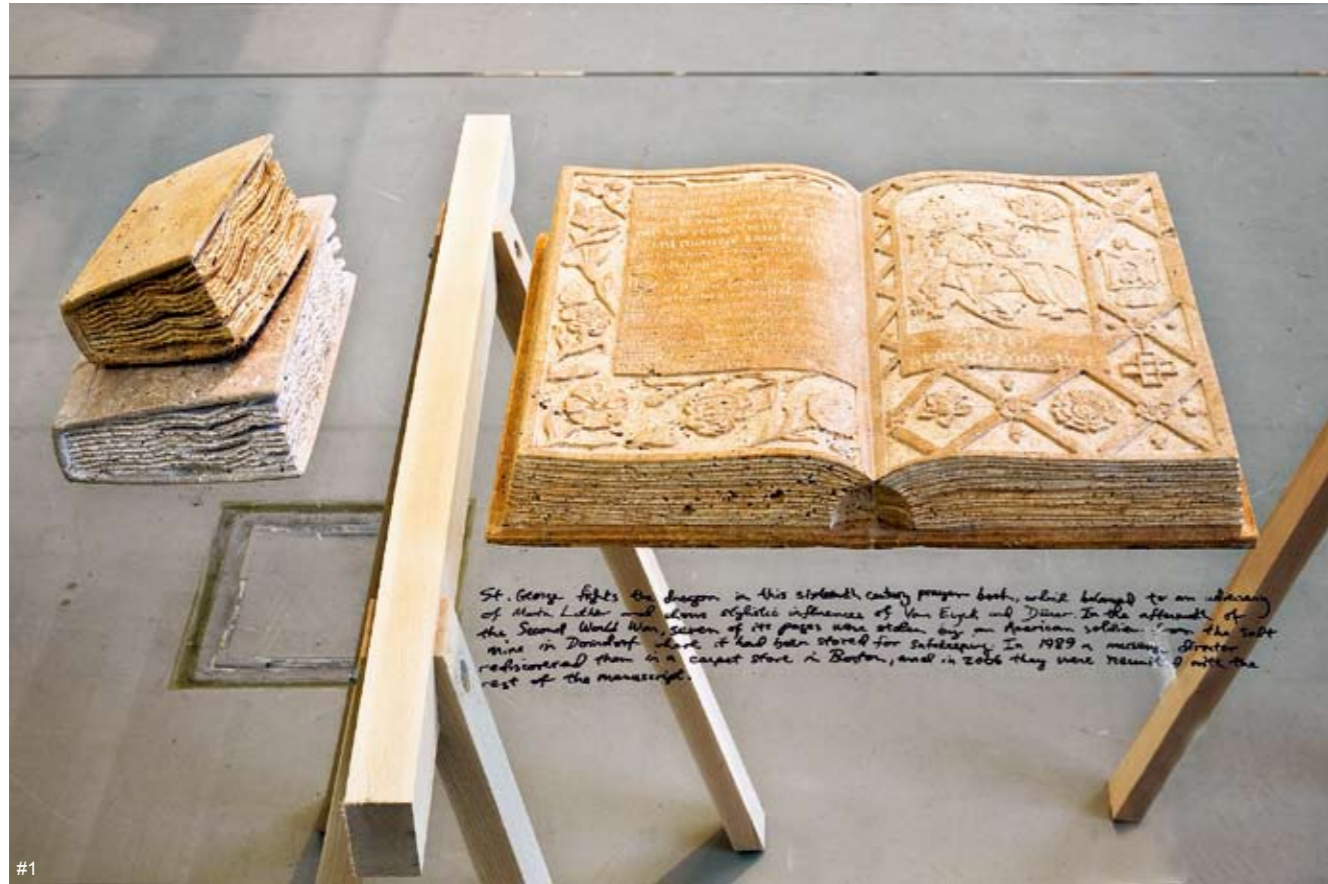 St. George fights the dragon in this sixteenth century prayer book, which belonged to an adversary
of Martin Luther and shows stylistic influences of Van Eyck and Dürer. In the aftermath of
the Second World War, seven of its pages were stolen by an American soldier from the salt
mine in where it had been stored for safekeeping. In 1989 a museum director
rediscovered them in a carpet store in Boston, and in 2006 they were reunited with the
rest of the manuscript.
#1